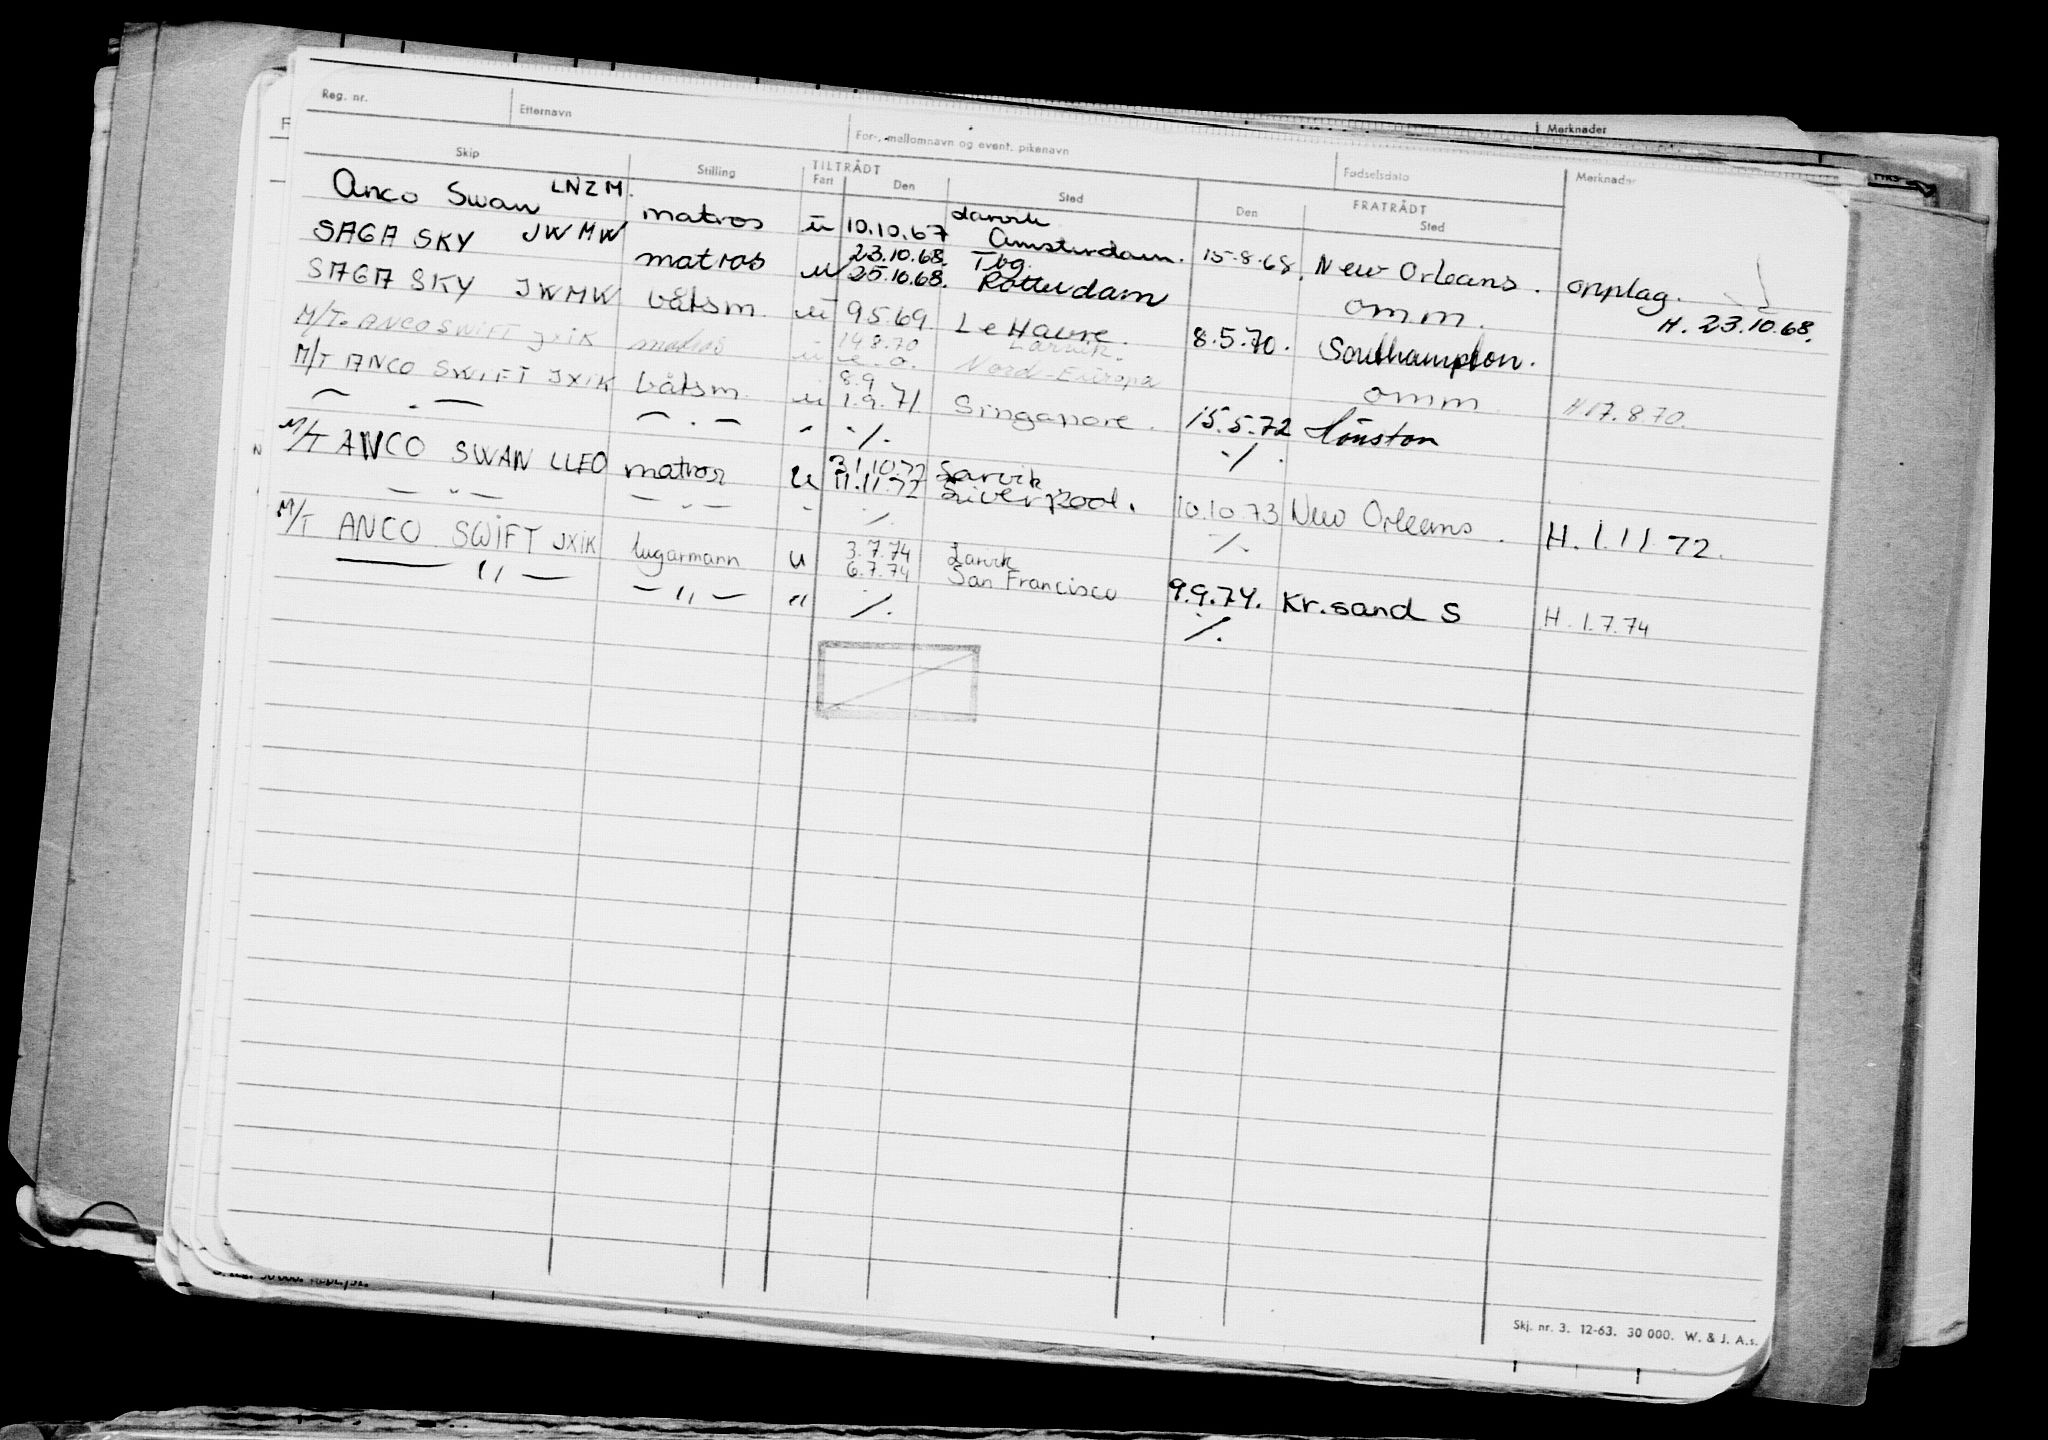 Reg. nr. Etternavn For-, mellomnavn og event. pikenavn Fødselsdato Merknader
Merknader
Skip Stilling TILTRÅDT Fart Den Sted Den FRATRÅDT Sted
Anco Swan LNZM. matros u 10.10.67 Larvik Amsterdam. 15.8.68. New Orleans. opplag.
SAGA SKY JWMW matros u 23.10.68. 25.10.68. Tbg. Rotterdam omm. H. 23.10.68.
SAGA SKY JWMW båtsm. u 9.5.69 Le Havre. 8.5.70. Southampton.
M/T. ANCO SWIFT JXIK matros u 14.8.70 e. o. Larvik. Nord-Europa omm. H 17.8.70.
M/T ANCO SWIFT JXIK båtsm. u 8.9 1.9.71 Singapore. 15.5.72 Houston
— . — — . — " ./. ./.
M/T ANCO SWAN LLEO matros u 31.10.72 11.11.72 Larvik Liverpool. 10.10.73 New Orleans. H. 1.11.72.
— " — — " — " ./. ./.
M/T ANCO SWIFT JXIK lugarmann u 3.7.74 6.7.74 Larvik San Francisco 9.9.74. Kr.sand S H. 1.7.74
— " — — " — " ./. ./.
Skj. nr. 3. 12-63. 30 000. W. & J. A.s.